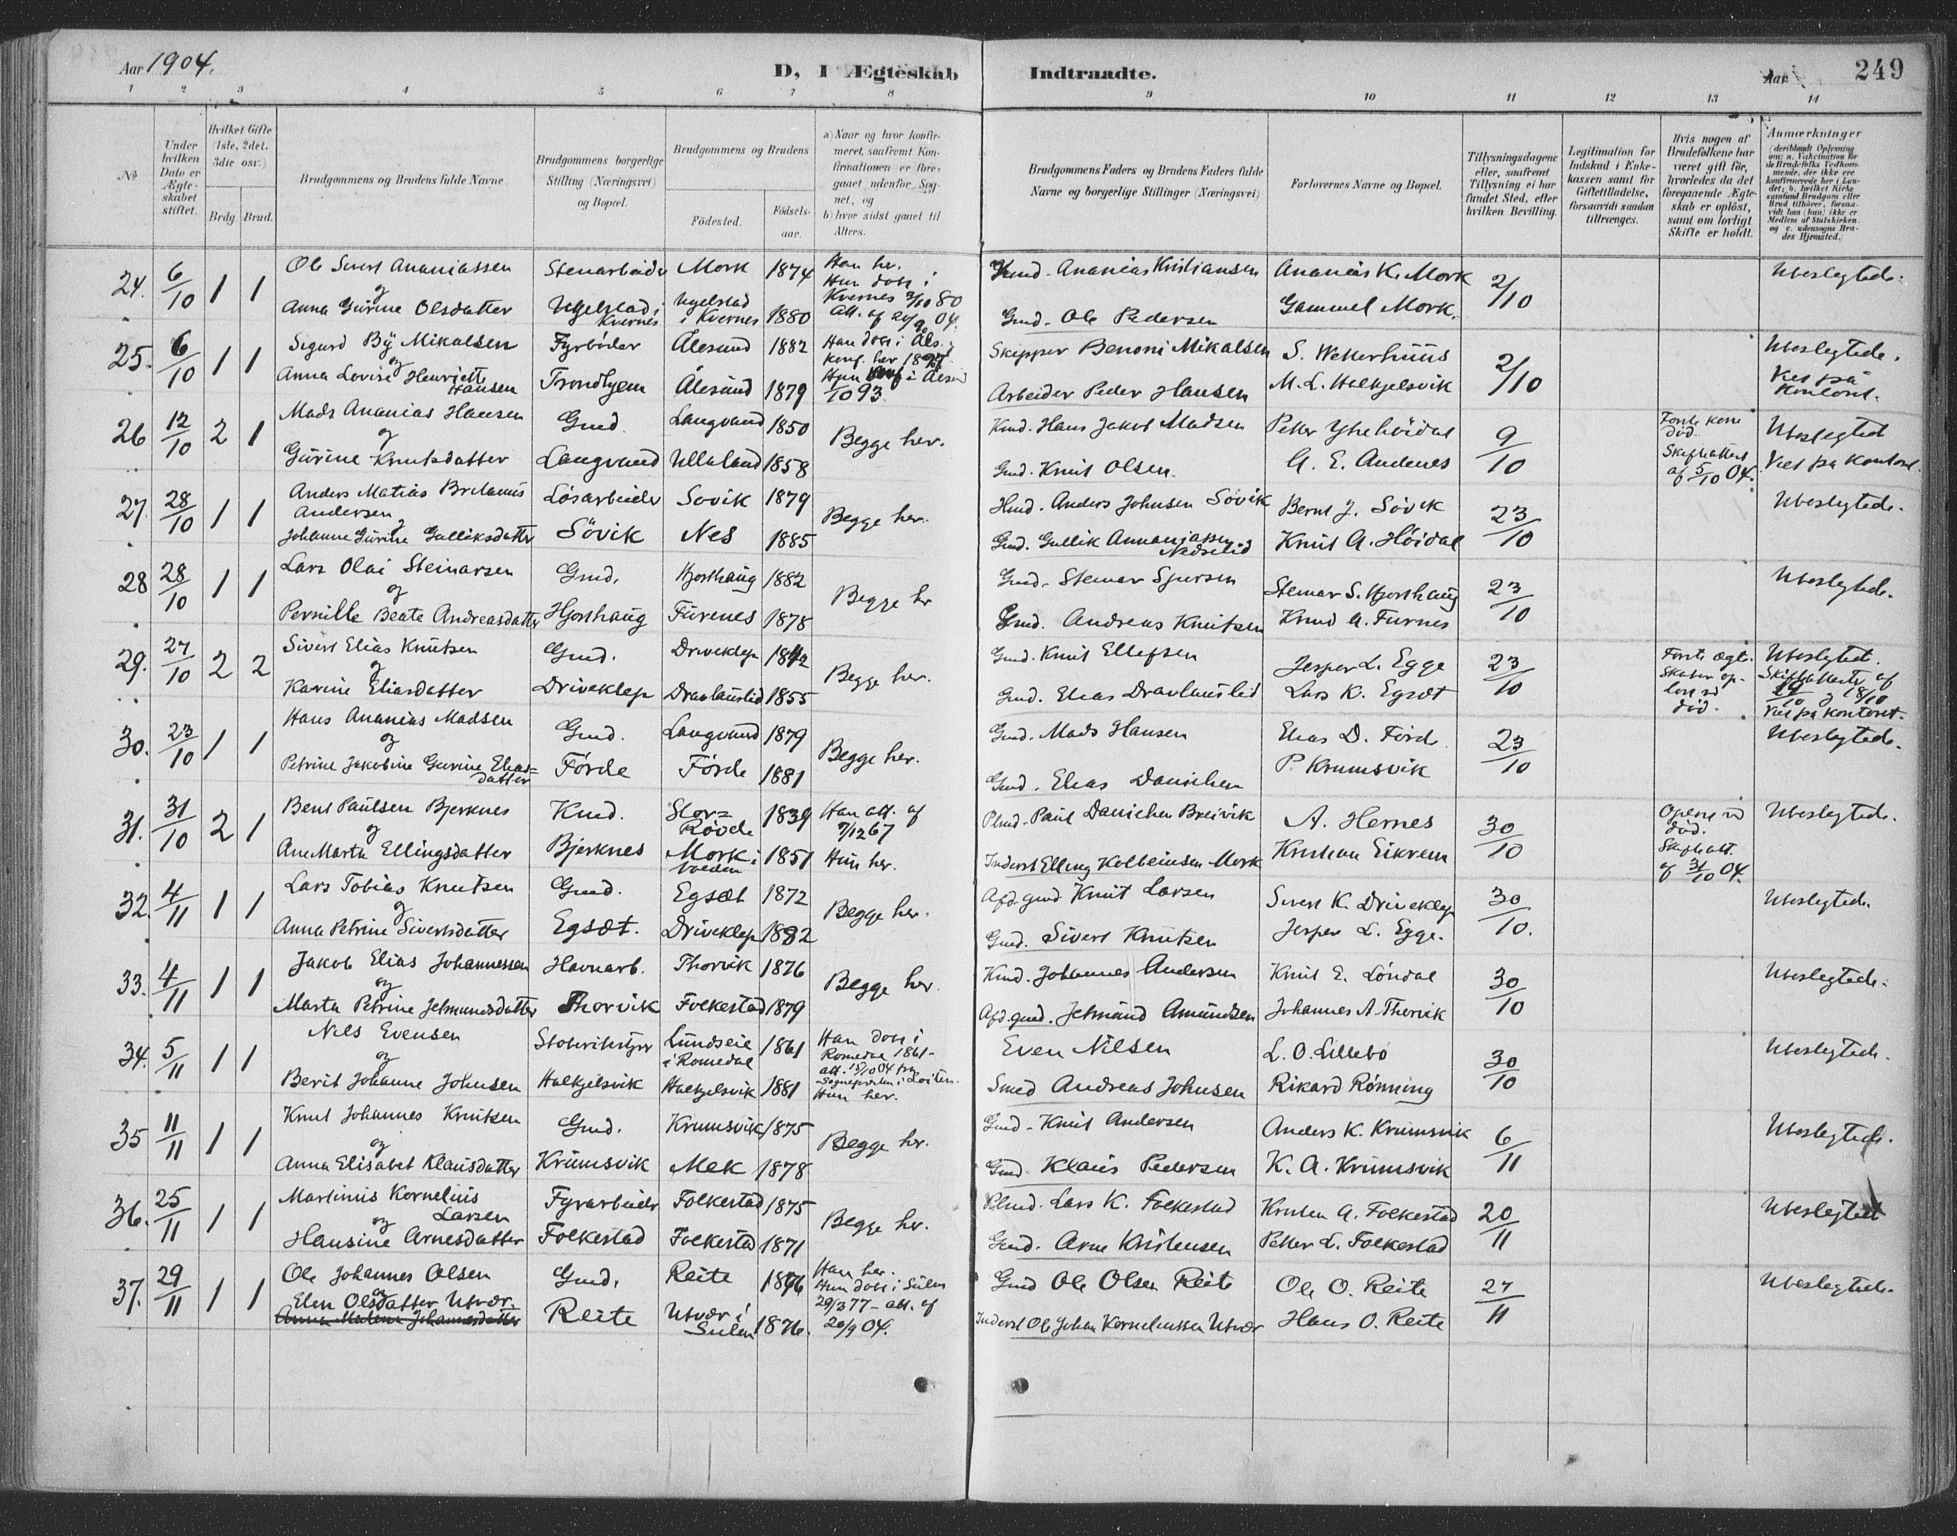 Aar 1904.
D, I Ægteskab Indtraadte.
Aar 249
1 2 3 4 5 6 7 8 9 10 11 12 13 14
No
Under hvilken Dato er Ægteskabet stiftet.
Hvilket Gifte (1ste, 2det, 3die osv.)
Brdg. Brud.
Brudgommens og Brudens fulde Navne.
Brudgommens borgerlige Stilling (Næringsvei) og Bopæl.
Brudgommens og Brudens
Fødested.
Fødselsaar.
a) Naar og hvor konfirmeret, saafremt Konfirmationen er foregaaet udenfor Sognet, og
b) hvor sidst gaaet til Alters.
Brudgommens Faders og Brudens Faders fulde Navne og borgerlige Stillinger (Næringsvei)
Forlovernes Navne og Bopæl.
Tillysningsdagene eller, saafremt Tillysning ei har fundet Sted, efter hvilken Bevilling.
Legitimation for Indskud i Enkekassen samt for Giftetilladelse, forsaavidt saadan tiltrænges.
Hvis nogen af Brudefolkene har været gift før, hvorledes da det foregaaende Ægteskab er opløst, samt om lovligt Skifte er holdt.
Anmærkninger
24. 6/10 1 1 Ole Sivert Ananiassen Stenarbeider Mork 1874 Han her. Gmd. Ananias Kristiansen Ananias K. Mork 2/10 Ubeslegtede.
og Hun døbt i
Anna Gurine Olsdatter Ugelstad i Kvernes Ugelstad i Kvernes 1880 Kvernes 3/10 80 Gmd. Ole Pedersen Gammel Mork.
25. 6/10 1 1 Sigurd Bÿ Mikalsen Fyrbøder Ålesund 1882 Skipper Benoni Mikalsen S. Wetterhuus 2/10 Ubeslegtede.
og konf. her 1897
Anna Lovise Henriette Hansen Trondhjem Ålesund 1879 /10 93 Arbeider Peder Hansen M. L. Halkjelsvik Viet på kontoret.
26 12/10 2 1 Mads Ananias Hansen Gmd. Langvand 1850 Begge her. Kmd. Hans Jakob Madsen 9/10 Første kone død. Ubeslegted
og Skifteattest
Gurine Knutsdatter Langvand Ullaland 1858 Gmd. Knut Olsen. A. E. Andenes af 5/10 04. Viet på kontoret.
27. 28/10 1 1 Anders Matias Andersen Løsarbeider Søvik 1879 Begge her. Hmd. Anders Johnsen Søvik Bernt J. Søvik 23/10 Ubeslegtede.
og
Johanne Gurine Gulliksdatter Søvik Nes 1885 Gmd. Gullik Knut A. Høidal
28 28/10 1 1 Lars Olai Steinarsen Gmd. Hjorthaug 1882 Begge her Gmd. Steinar Sjursen Steinar S. Hjorthaug 23/10 Ubeslegtede.
og
Pernille Beate Andreasdatter Hjorthaug Furenes 1878 Gmd. Andreas Knutsen Knud A. Furnes
29. 27/10 2 2 Sivert Elias Knutsen Gmd. Driveklep 1842 Begge her. Gmd. Knut Ellefsen Jesper L. Egge 23/10 Ubeslegted.
og
Karine Eliasdatter Driveklep Dravlauslid 1855 Gmd. Elias Dravlauslid Lars K. Egsæt død. Viet på kontoret.
30. 23/10 1 1 Hans Ananias Madsen Gmd. Langvand 1879 Begge her. Gmd. Mads Hansen Elias D. Førde 23/10 Ubeslegtede.
og
Petrine Jakobine Gurine Eliasdatter Førde Førde 1881 Gmd. Elias Danielsen P. Krumsvik
31. 31/10 2 1 Bent Paulsen Bjerknes Kmd. Stor-Røvde 1839 Han att. af 7/12 67 Plmd. Paul Danielsen Breivik A. Hernes 30/10 død. Ubeslegtede.
og
Ane Marta Ellingsdatter Bjerknes Mork i Volden 1851 Hun her. Inderst Elling Kolbeinsen Mork Kristian Eikrem af 3/10 04.
32. 4/11 1 1 Lars Tobias Knutsen Gmd. Egsæt 1872 Begge her. Afd. gmd. Knut Larsen Sivert K. Driveklep 30/10. Ubeslegtede.
og
Anna Petrine Sivertsdatter Egsæt. Driveklep 1882 Gmd. Sivert Knutsen Jesper L. Egge.
33. 4/11 1 1 Jakob Elias Johannessen Havnarb. Thorvik 1876 Begge her. Kmd. Johannes Andersen Knut E. Løndal 30/10 Ubeslegtede.
og
Marta Petrine Jetmundsdatter Thorvik Folkestad 1879 Afd. gmd. Jetmund Amundsen Johannes A. Thorvik
34. 5/11 1 1 Nils Evensen Lundseie i Romedal 1861 Han døbt i Even Nilsen L. O. Lillebø 30/10 Ubeslegtede.
og Romedal 1861- att. 15/10 04 fra
Berit Johanne Johnsen Halkjelsvik Halkjelsvik 1881 Hun her. Smed Andreas Johnsen Rikard Rønning
35 11/11 1 1 Knut Johannes Knutsen Gmd. Krumsvik 1875 Begge her. Gmd. Knut Andersen Anders K. Krumsvik 6/11 Ubeslegtede.
og
Anna Elisabet Klausdatter Krumsvik Mek 1878 Gmd. Klaus Pedersen K. A. Krumsvik
36. 25/11 1 1 Martinus Kornelius Larsen Fyrarbeider Folkestad 1875 Begge her. Plmd. Lars K. Folkestad Kristen A. Folkestad 20/11 Ubeslegtet
og
Hansine Arnesdatter Folkestad Folkestad 1871 Gmd. Arne Kristensen Petter L. Folkestad
37. 29/11 1 1 Ole Johannes Olsen Gmd. Reite 1876 Han her. Gmd Ole Olsen Reite Ole O. Reite 27/11 Ubeslegtede.
og Hun døbt i Sulen
Elen Olsdatter Utvær. Reite Utvær i Sulen 1876. 29/3 77 - att. af 20/9 04. Inderst Ole Johan Korneliussen Utvær Hans O. Reite
Anna Malene Johannesdatter